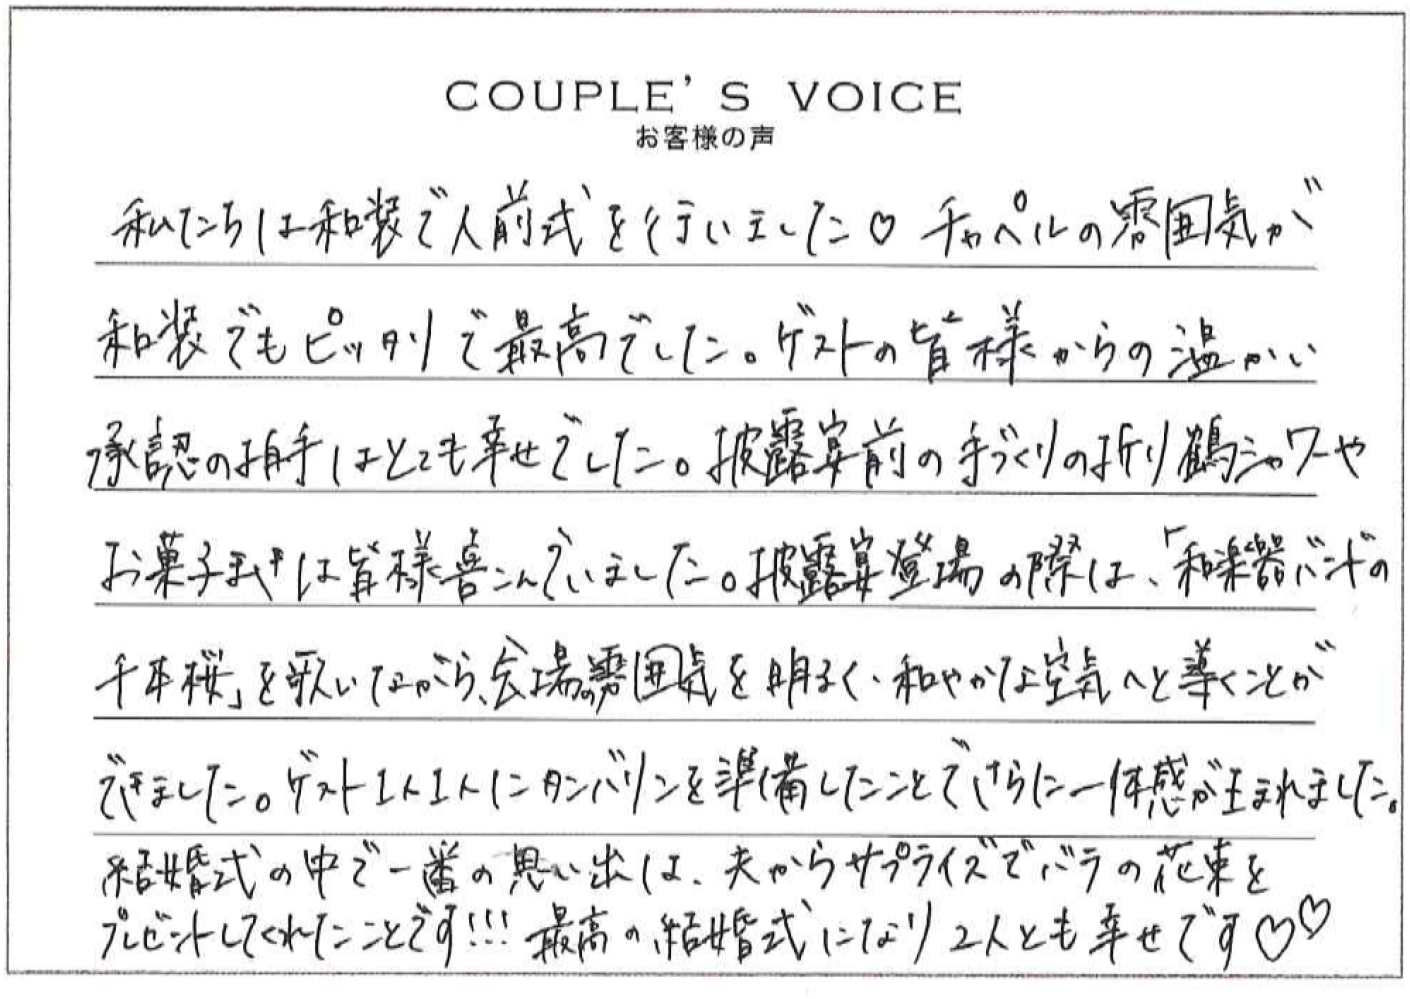 COUPLE'S VOICE
お客様の声
私たちは和装で人前式を行いました♡ チャペルの雰囲気が
和装でもピッタリで最高でした。ゲストの皆様からの温かい
承認の拍手はとても幸せでした。披露宴前の手づくりの折り鶴シャワーや
お菓子まきは皆様喜こんでいました。披露宴登場の際は、「和楽器バンドの
千本桜」を歌いながら、会場の雰囲気を明るく、和やかな空気へと導くことが
できました。ゲスト1人1人にタンバリンを準備したことでさらに一体感が生まれました。
結婚式の中で一番の思い出は、夫からサプライズでバラの花束を
プレゼントしてくれたことです!!! 最高の結婚式になり2人とも幸せです♡♡